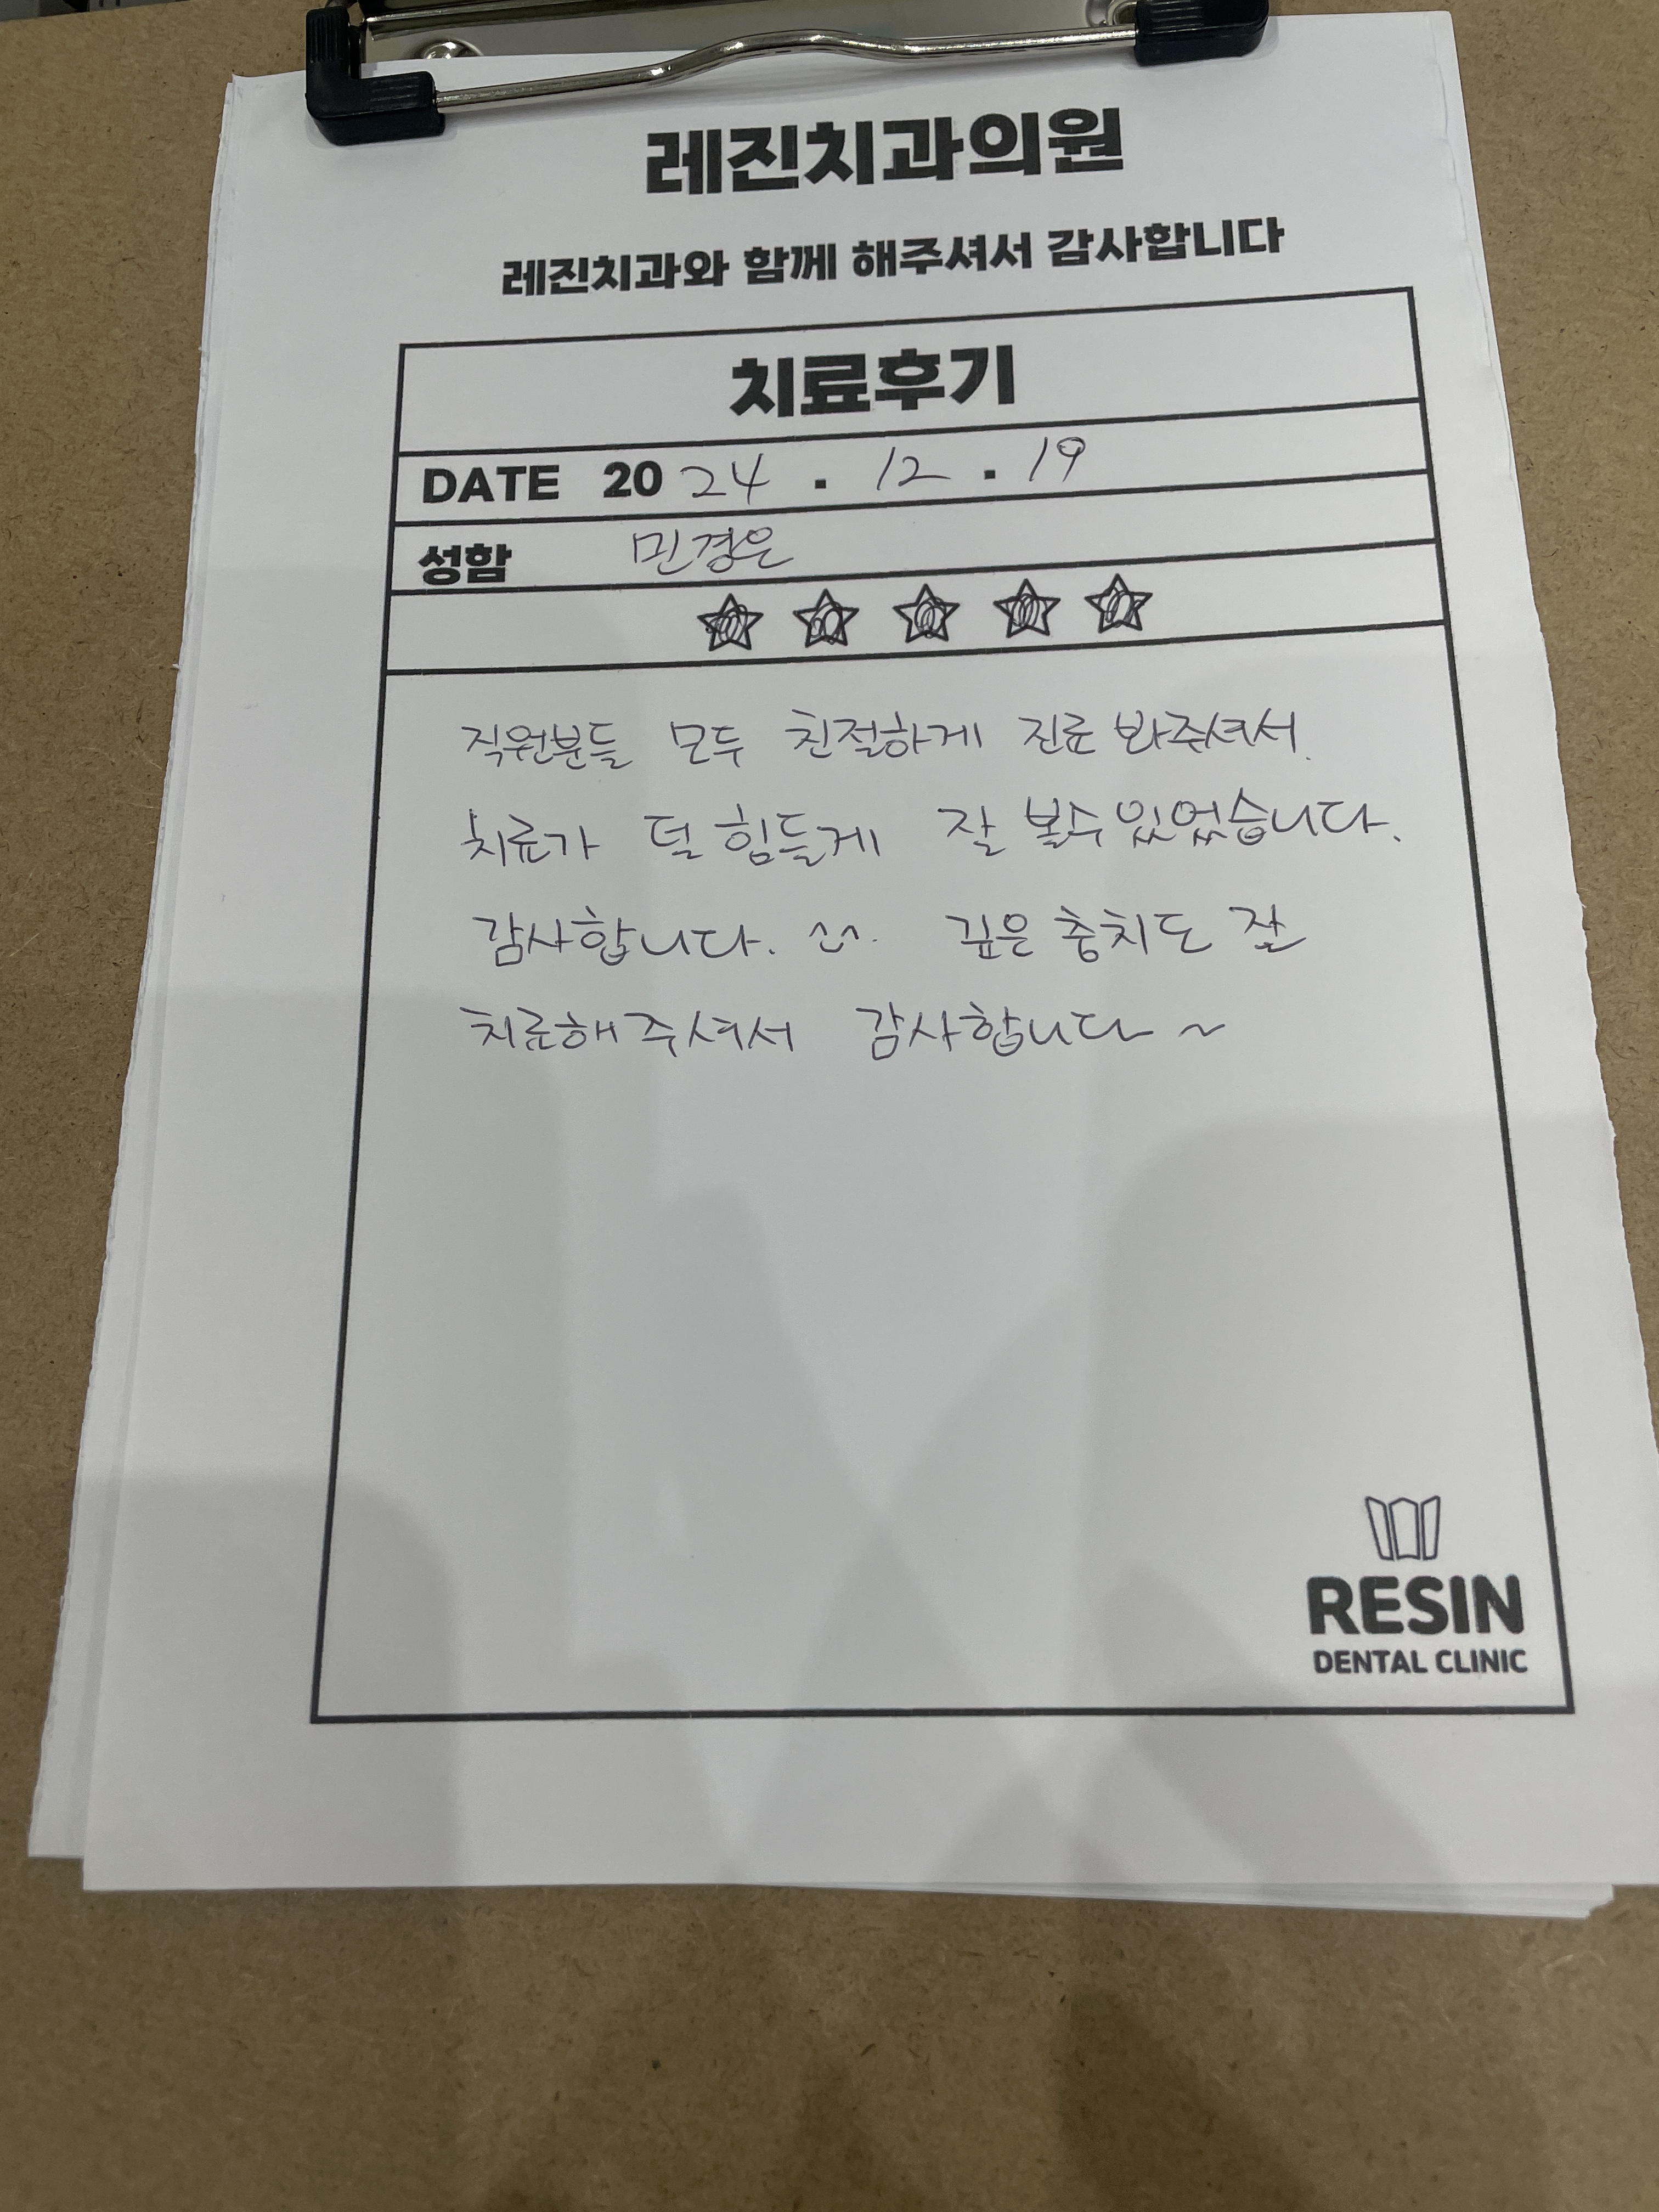 레진치과의원
레진치과와 함께 해주셔서 감사합니다
치료후기
DATE 2024 . 12 . 19
성함 민경은
직원분들 모두 친절하게 진료 봐주셔서.
치료가 덜 힘들게 잘 볼수 있었습니다.
감사합니다. ^^. 깊은 충치도 잘
치료해주셔서 감사합니다~
RESIN
DENTAL CLINIC